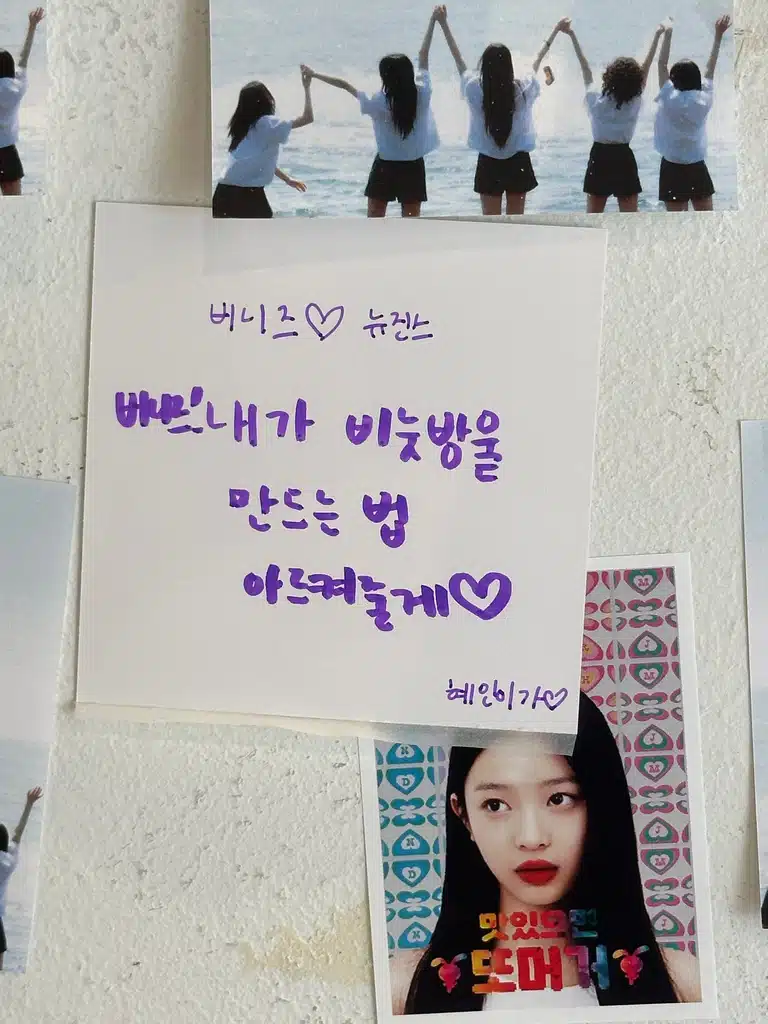 버니즈♡ 뉴진스
버니즈! 내가 비눗방울
만드는 법
아르켜줄게♡
혜인이가♡
맛있으면
또먹거